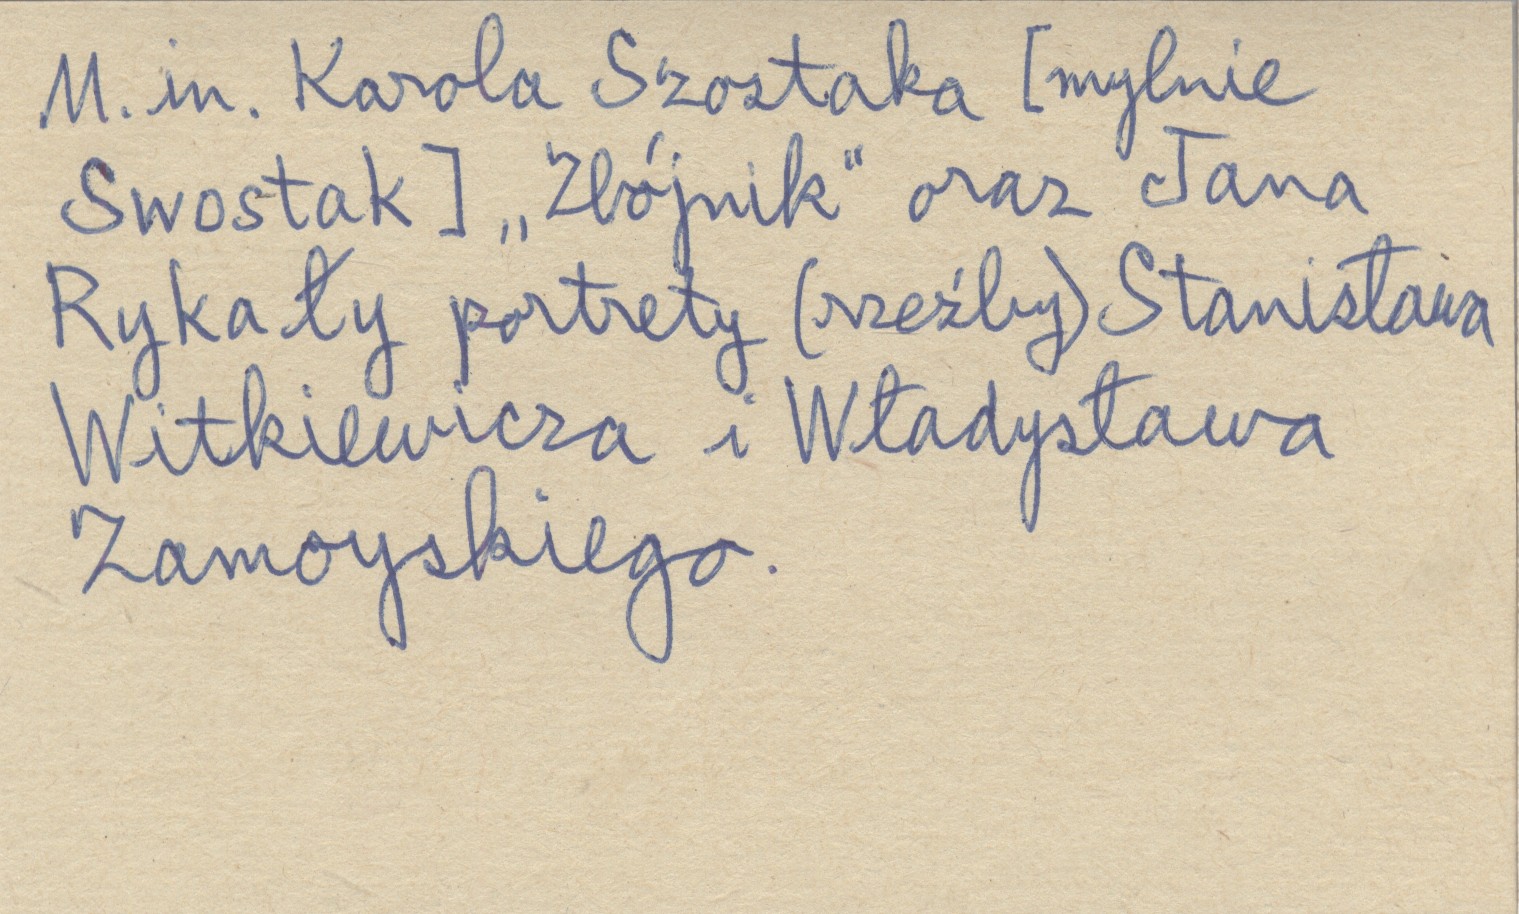 M. in. Karola Szostaka [mylnie
Swostak] „Zbójnik“ oraz Jana
Rykały portrety (rzeźby) Stanisława
Witkiewicza i Władysława
Zamoyskiego.